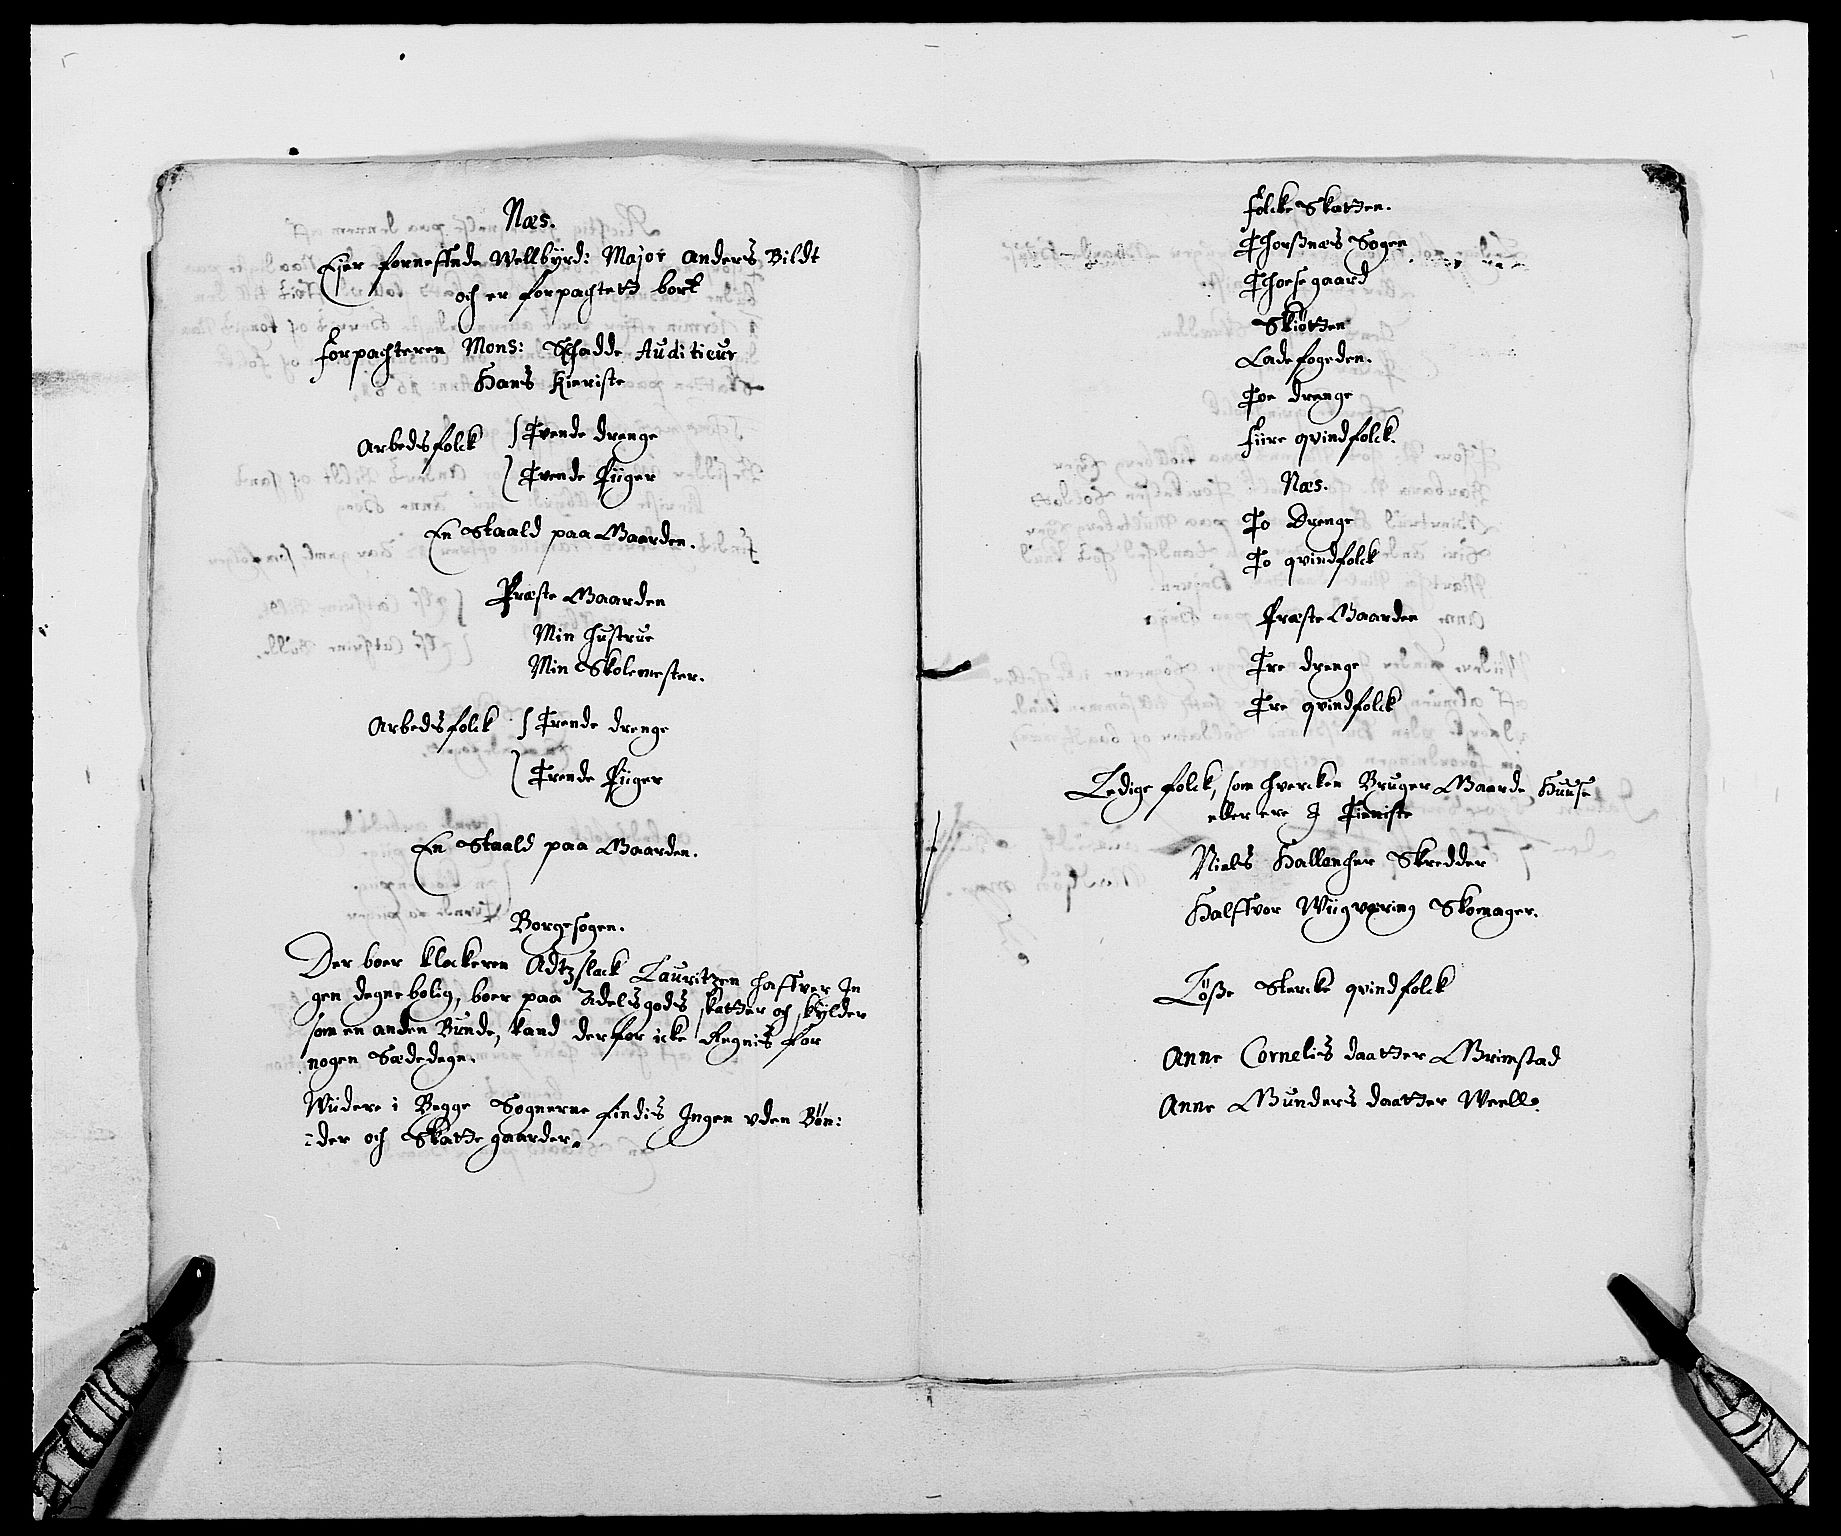 Næs.
Ejer forneffnde Wellbyrd: Major Anders Bildt
och er forpachtett bort
Forpachteren Mons: Schadde Auditieur
Hans Kieriste
Arbedsfolck Tvende drenge
Tvende Piiger
En Staald paa Gaarden.
Præste Gaarden
Min hustrue
Min Skolemester.
Arbedsfolck Trende drenge
Trende Piiger
En Staald paa Gaarden.
Borgesogen.
Der boer klockeren Lauritzen haffver In
gen degnebolig, boer paa Adelsgods skatter och skylder
som en anden Bunde, kand derfor icke Regnis for
nogen Sædedegn.
Widere i Begge Sognerne findis Ingen uden Bøn:
=der och Skatte gaarder.
Folcke Skatten.
Thorßnæs Sogen
Thosegaard
Skiøtten
Ladefogeden.
Toe drenge
Fiire qvindfolck.
Næs.
To Drenge
To qvindfolck
Præste Gaarden
Tre drenge
Tre qvindfolck
Ledige folck, som hvercken Bruger Gaarde, Huuse
eller ere I Tieniste
Niels Hallencher Skredder
Halffvor Wiigværing Skomager.
Løße Stercke qvindfolck
Anne Cornelis daatter Grimstad
Anne Gunders daatter Weelle.